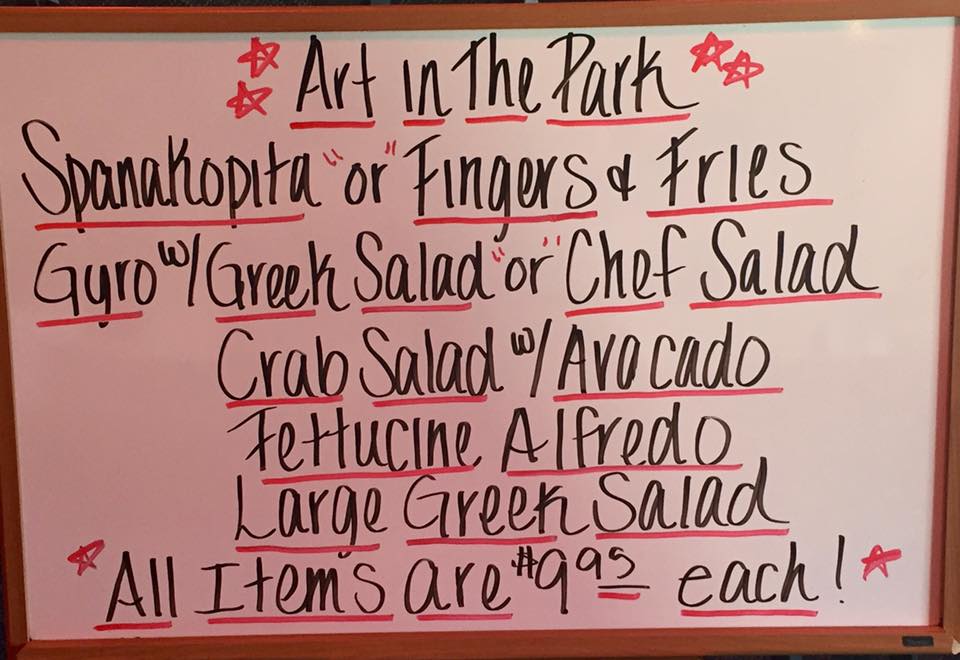 Art in The Park
Spanakopita "or" Fingers & Fries
Gyro w/Greek Salad "or" Chef Salad
Crab Salad w/Avocado
Fettucine Alfredo
Large Greek Salad
All Items are $9.95 each!